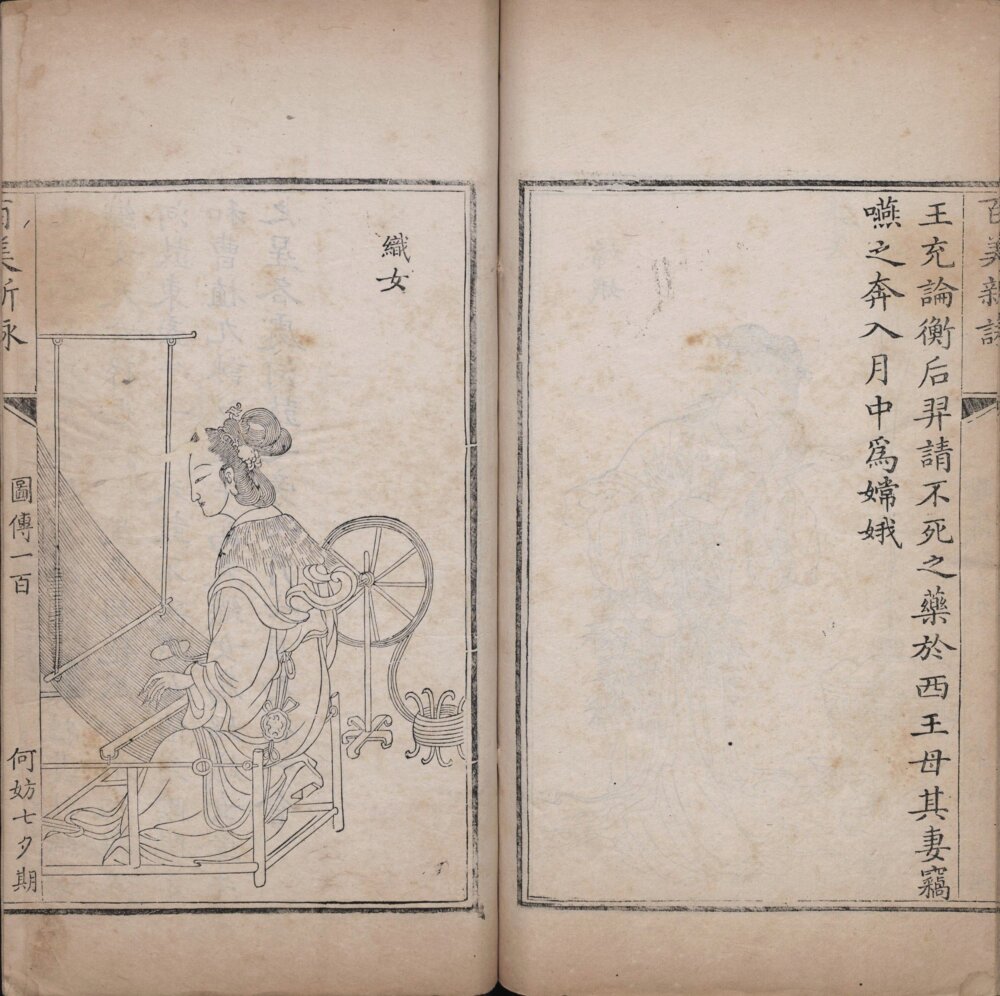 百美新詠
王充論衡后羿請不死之藥於西王母其妻竊
嚥之奔入月中爲嫦娥
織女
百美新詠
圖傳一百
何妨七夕期